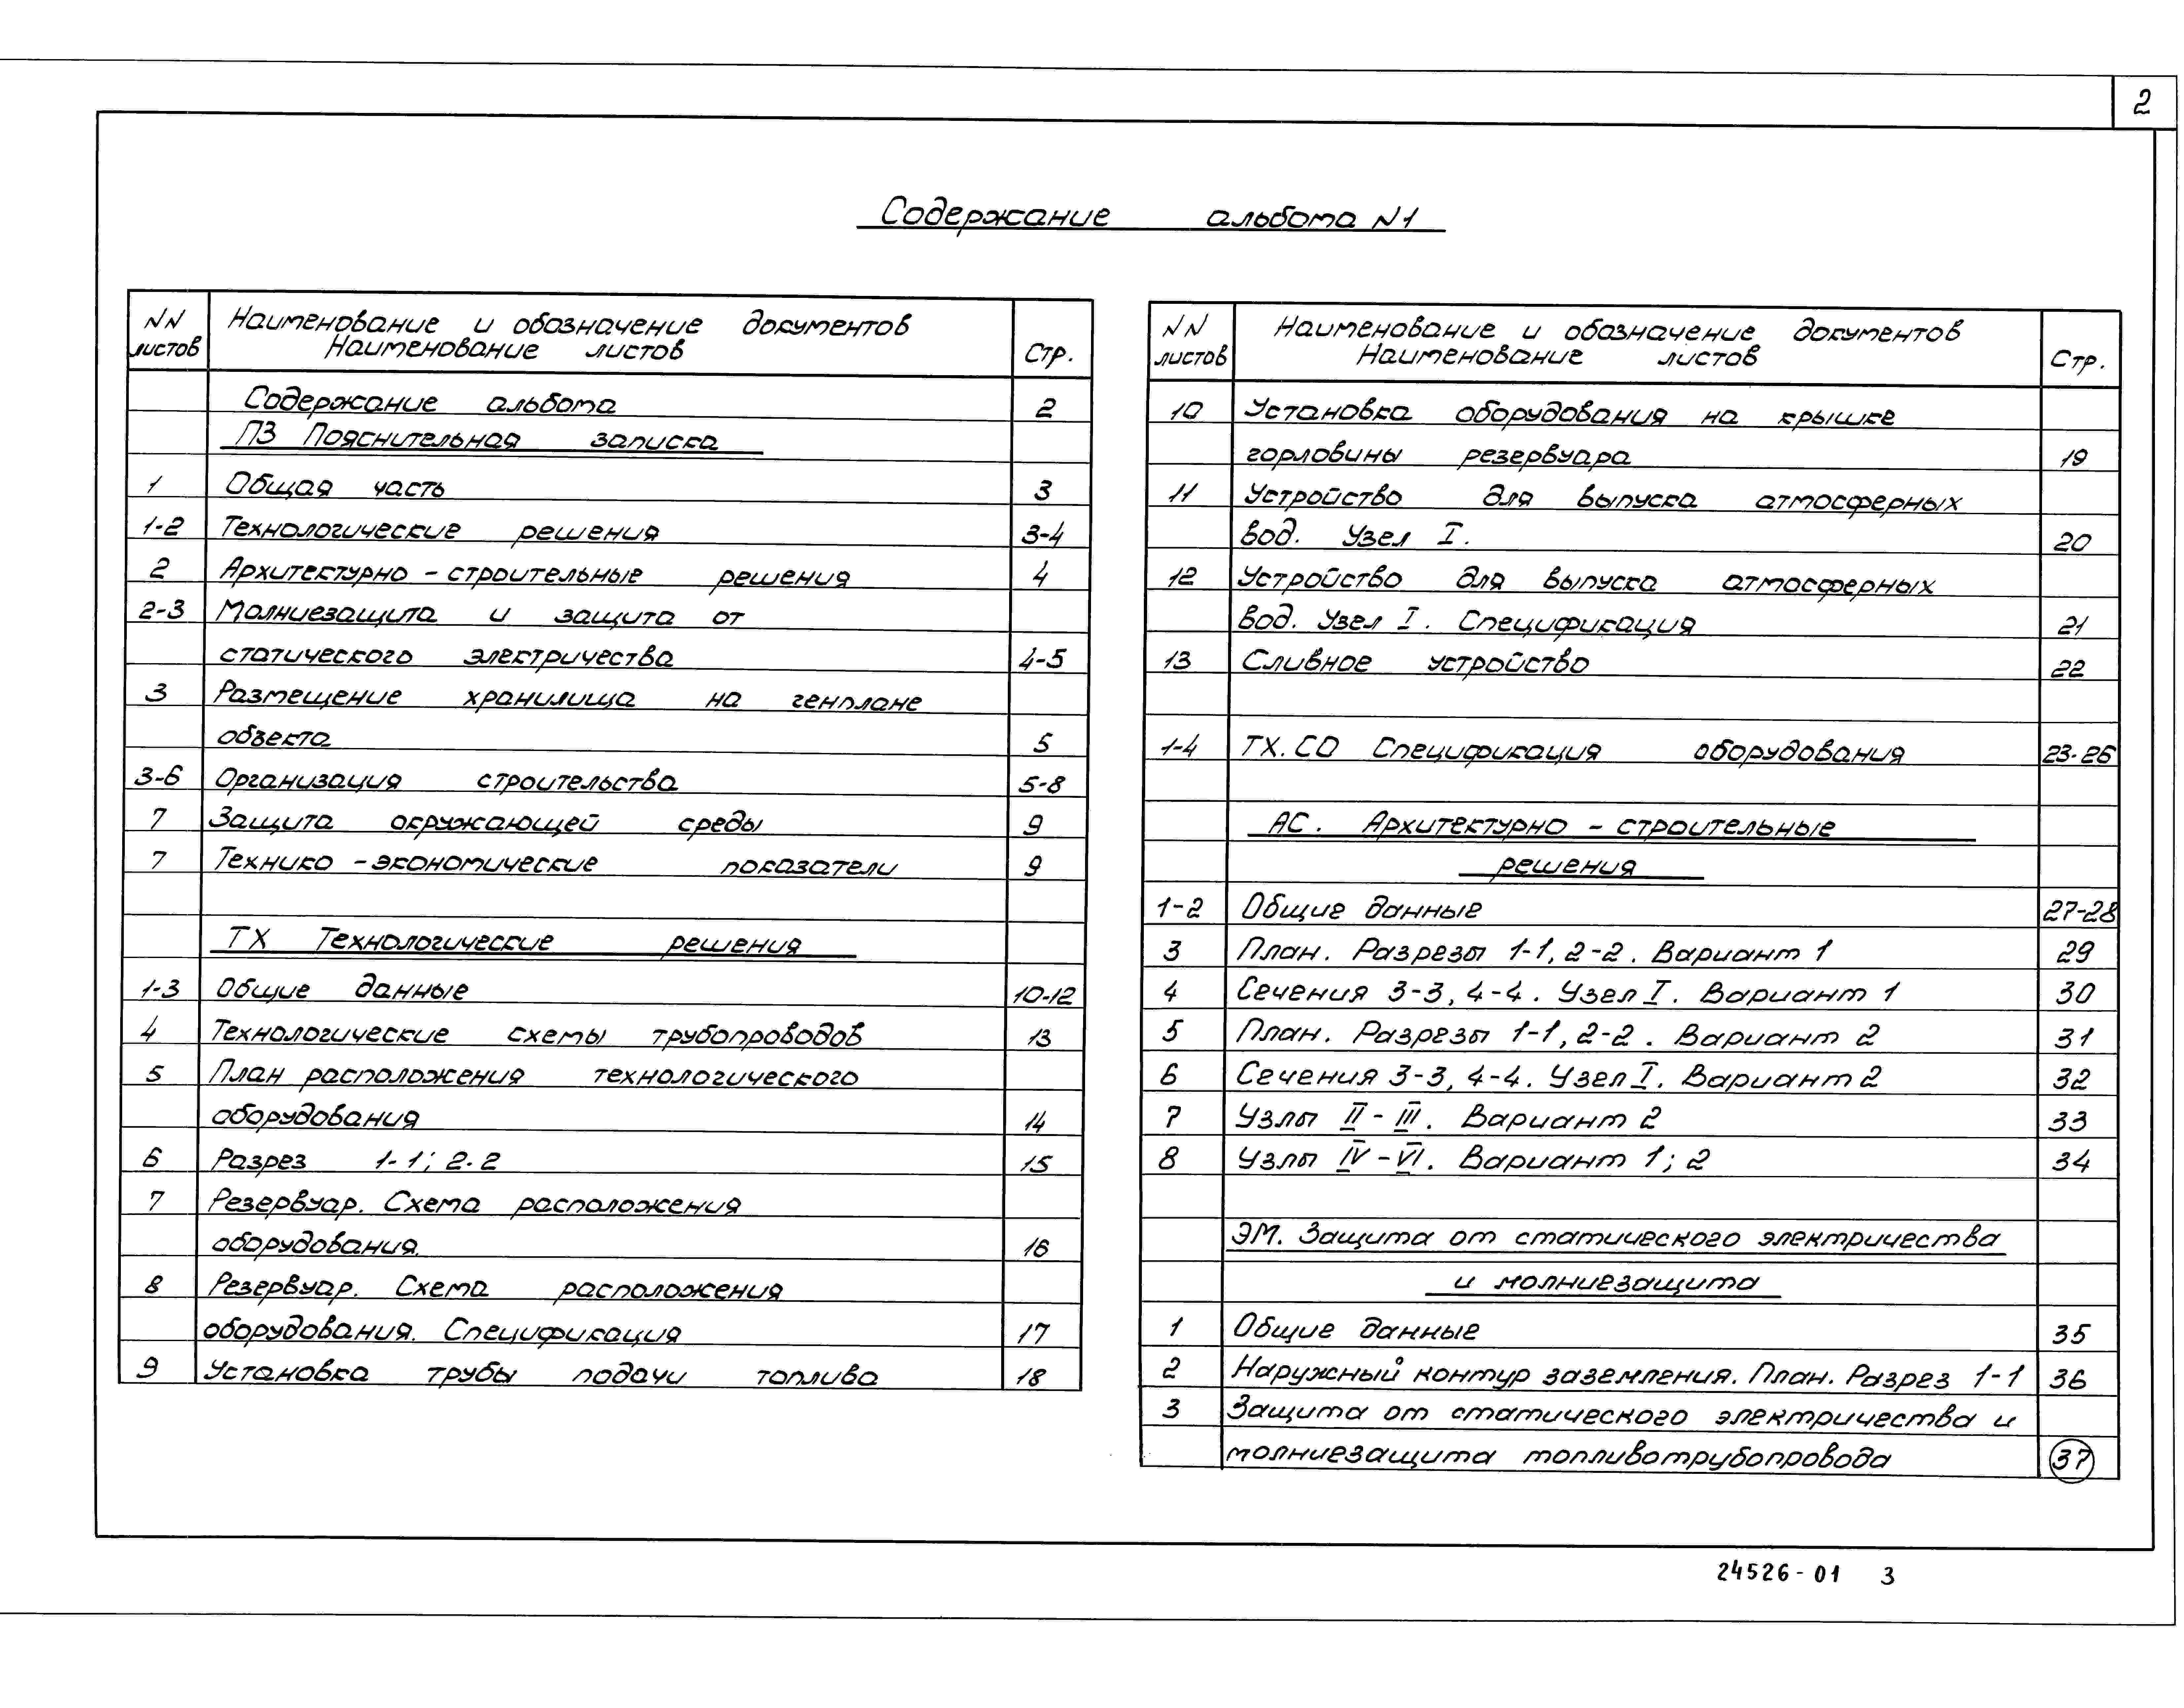 2
Содержание альбома N1
NN листов Наименование и обозначение документов Наименование листов Стр.
Содержание альбома 2
ПЗ Пояснительная записка
1 Общая часть 3
1-2 Технологические решения 3-4
2 Архитектурно-строительные решения 4
2-3 Молниезащита и защита от
статического электричества 4-5
3 Размещение хранилища на генплане
объекта 5
3-6 Организация строительства 5-8
7 Защита окружающей среды 9
7 Технико-экономические показатели 9
ТХ Технологические решения
1-3 Общие данные 10-12
4 Технологические схемы трубопроводов 13
5 План расположения технологического
оборудования 14
6 Разрез 1-1; 2-2 15
7 Резервуар. Схема расположения
оборудования. 16
8 Резервуар. Схема расположения
оборудования. Спецификация 17
9 Установка трубы подачи топлива 18
NN листов Наименование и обозначение документов Наименование листов Стр.
10 Установка оборудования на крышке
горловины резервуара 19
11 Устройство для выпуска атмосферных
вод. Узел I. 20
12 Устройство для выпуска атмосферных
вод. Узел I. Спецификация 21
13 Сливное устройство 22
1-4 ТХ.СО Спецификация оборудования 23-26
АС. Архитектурно-строительные
решения
1-2 Общие данные 27-28
3 План. Разрезы 1-1, 2-2. Вариант 1 29
4 Сечения 3-3, 4-4. Узел I. Вариант 1 30
5 План. Разрезы 1-1, 2-2. Вариант 2 31
6 Сечения 3-3, 4-4. Узел I. Вариант 2 32
7 Узлы II-III. Вариант 2 33
8 Узлы IV-VI. Вариант 1; 2 34
ЭМ. Защита от статического электричества
и молниезащита
1 Общие данные 35
2 Наружный контур заземления. План. Разрез 1-1 36
3 Защита от статического электричества и
молниезащита топливотрубопровода 37
24526-01 3